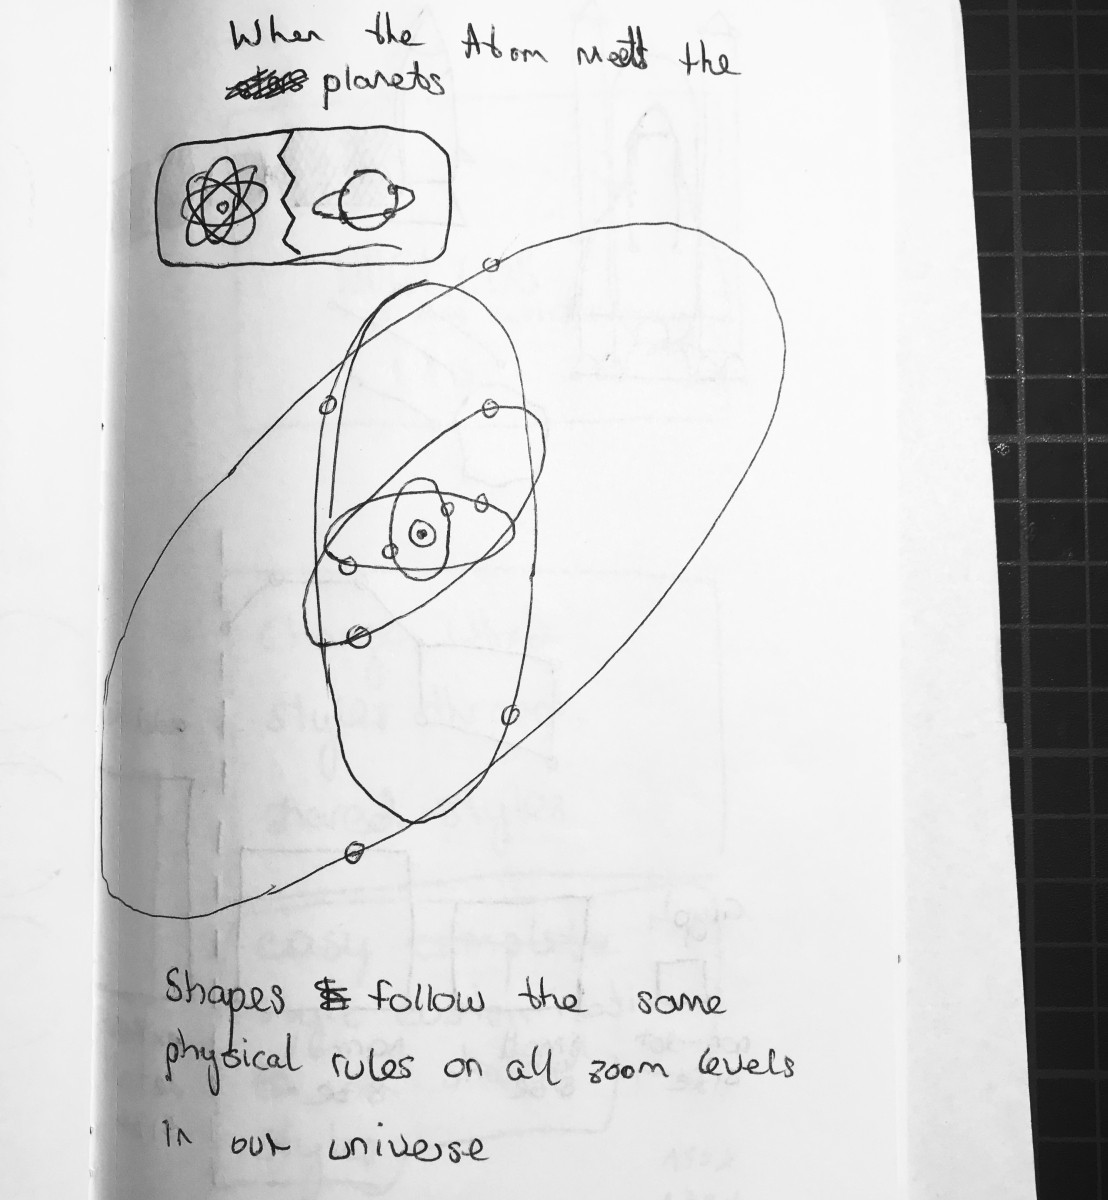 When the Atom meets the
planets
Shapes follow the same
physical rules on all zoom levels
in our universe